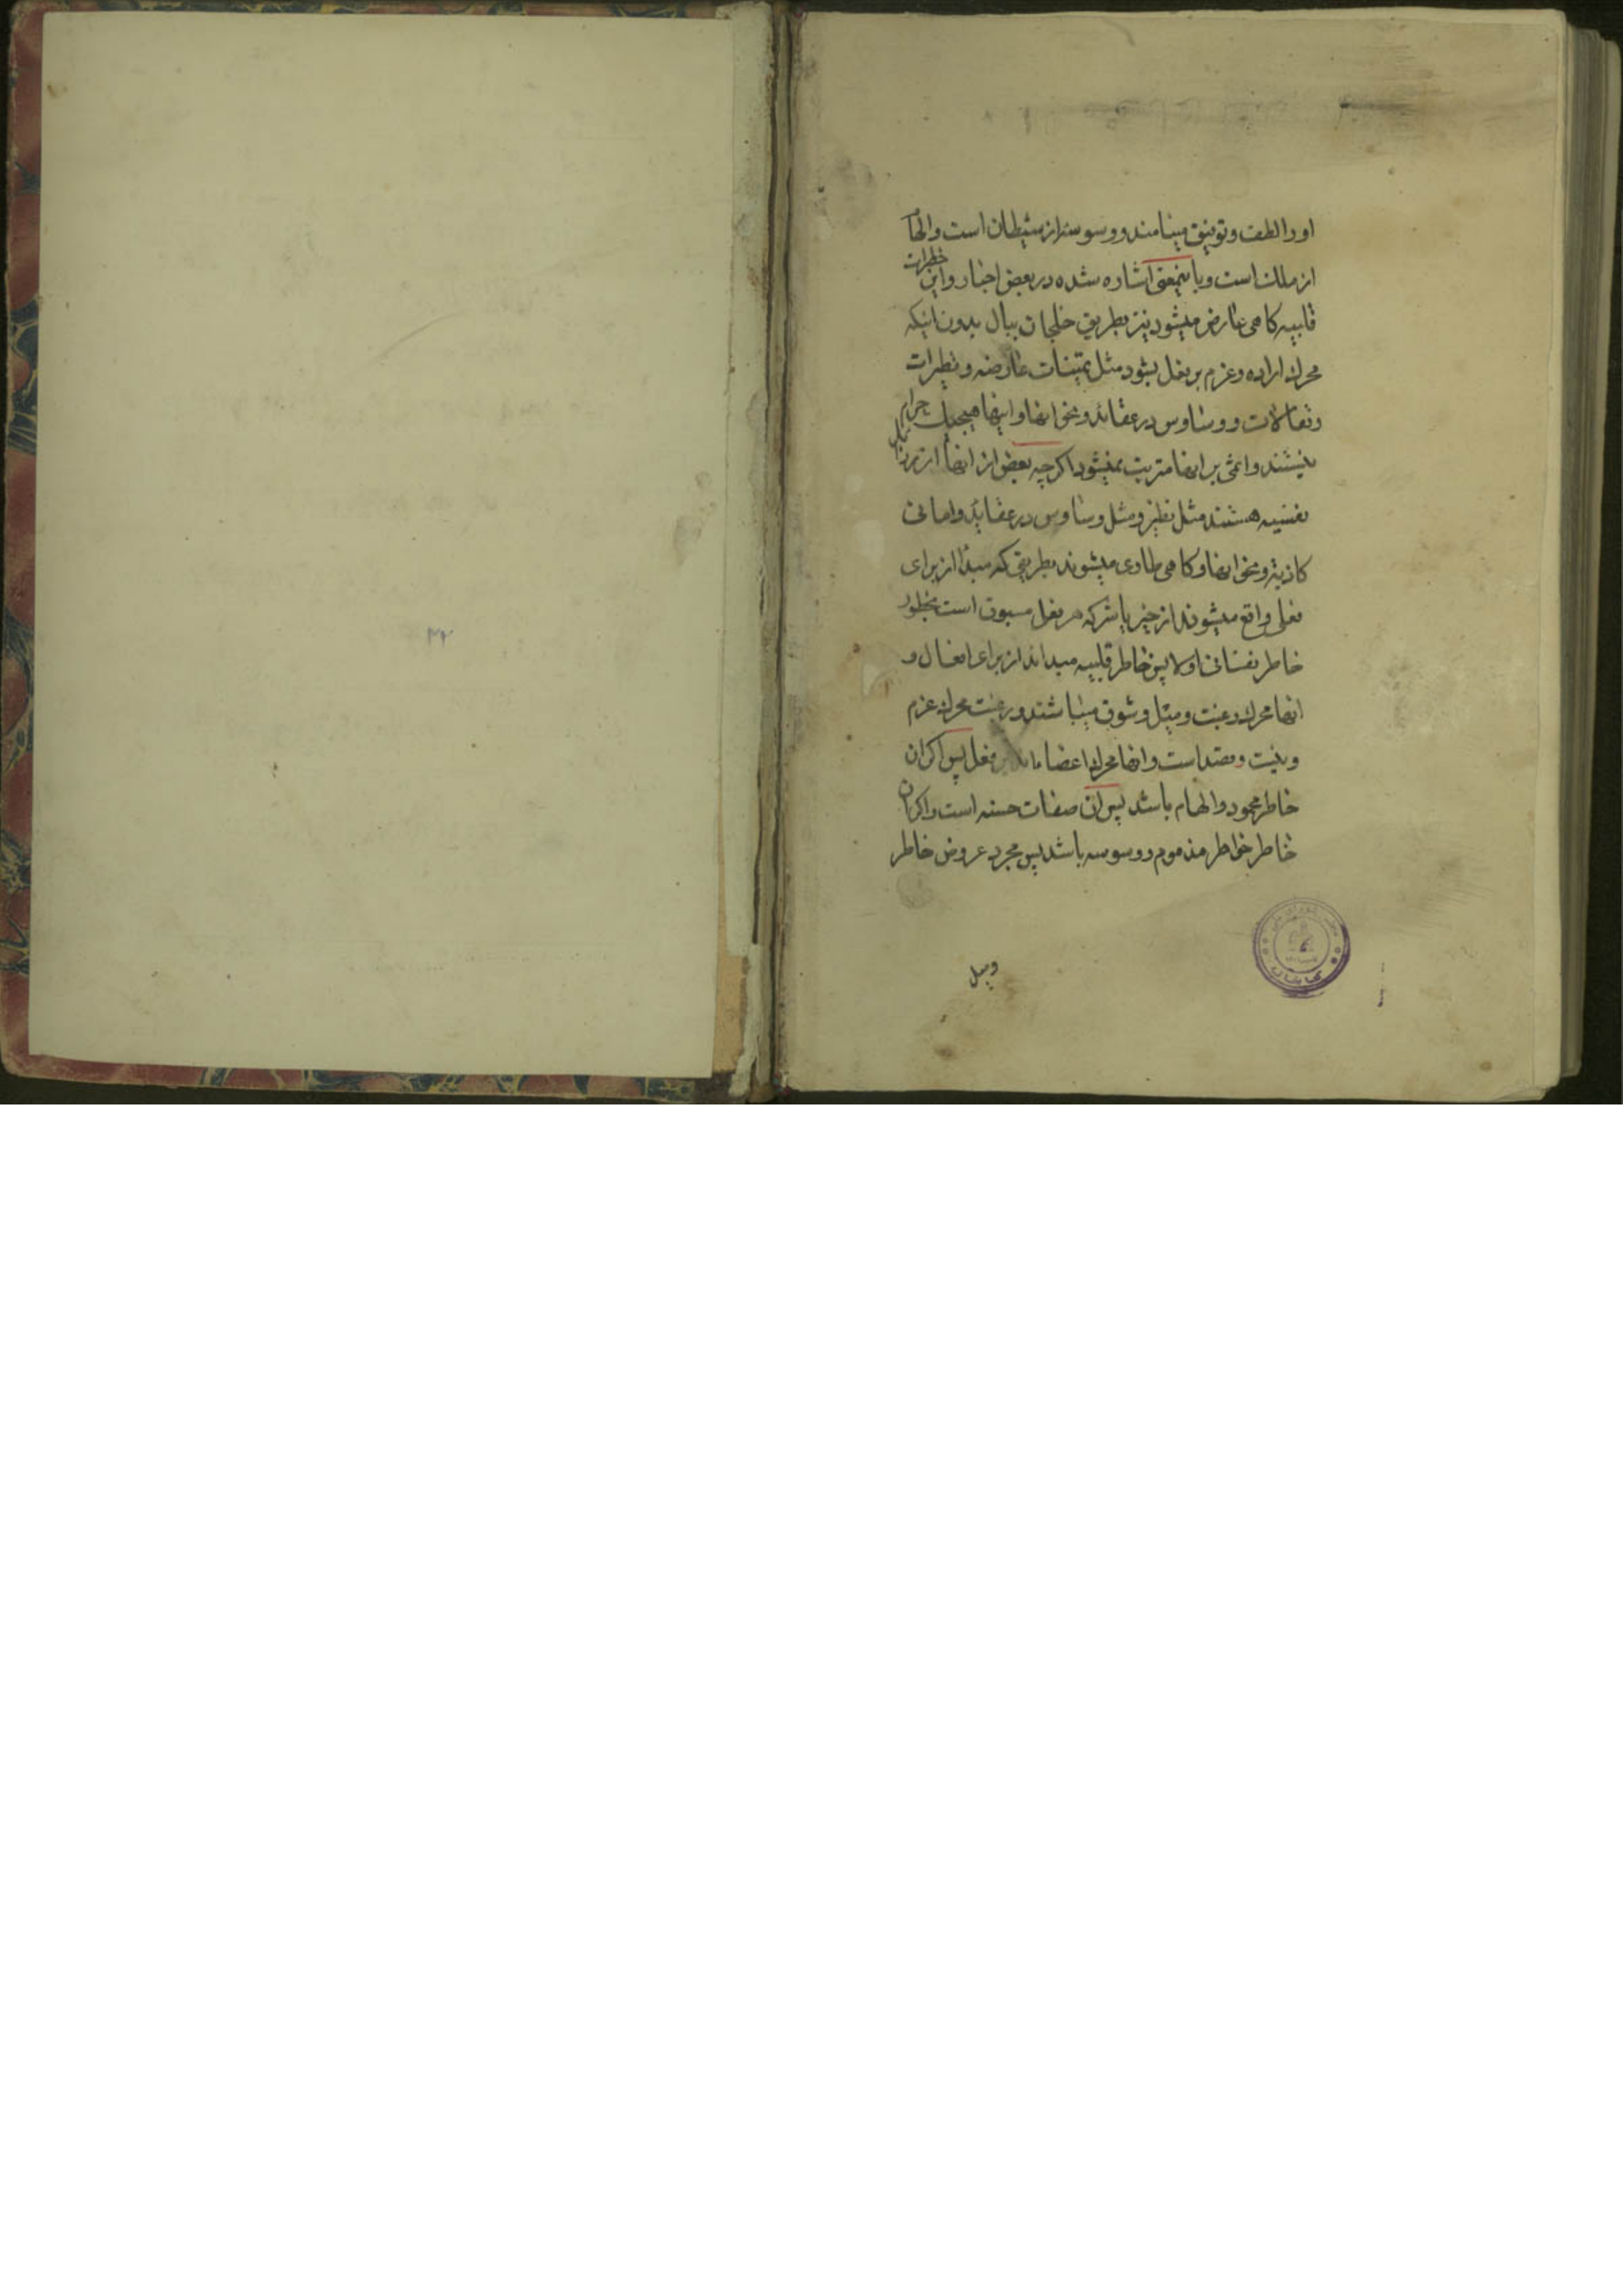 اورا لطف و توفیق مینامند و وسوسه از شیطان است و الهام
از ملک است و باینمعنی اشاره شده در بعض اخبار و این خطرات
قلبیه کاهی عارض میشود نیز بطریق خلجان ببال بدون اینکه
محرک اراده و عزم بر فعل بشود مثل تمنیات عارضه و تطیرات
و تفالات و وساوس در عقائد و نحو انها و اینها هیچیک حرام
نیستند و اثمی بر انها مترتب نمیشود اکرچه بعض از انها از رذایل
نفسیه هستند مثل تطیر و مثل وساوس در عقاید و امانی
کاذبه و نحو انها و کاهی طاری میشوند بطریقی که مبدأ از برای
فعلی واقع میشوند از خیر یا شر که هر فعل مسبوق است بخطور
خاطر نفسانی اولا پس خاطر قلبیه مبداند از برای افعال و
انها محرک رغبت و میل و شوق میباشند و رغبت محرک عزم
و نیت و قصد است و انها محرک اعضا فعل پس اکر ان
خاطر محمود و الهام باشد پس ان صفات حسنه است و اکر ان
خاطر خواطر مذموم و وسوسه باشد پس مجرد عروض خاطر
ومیل
۲۲